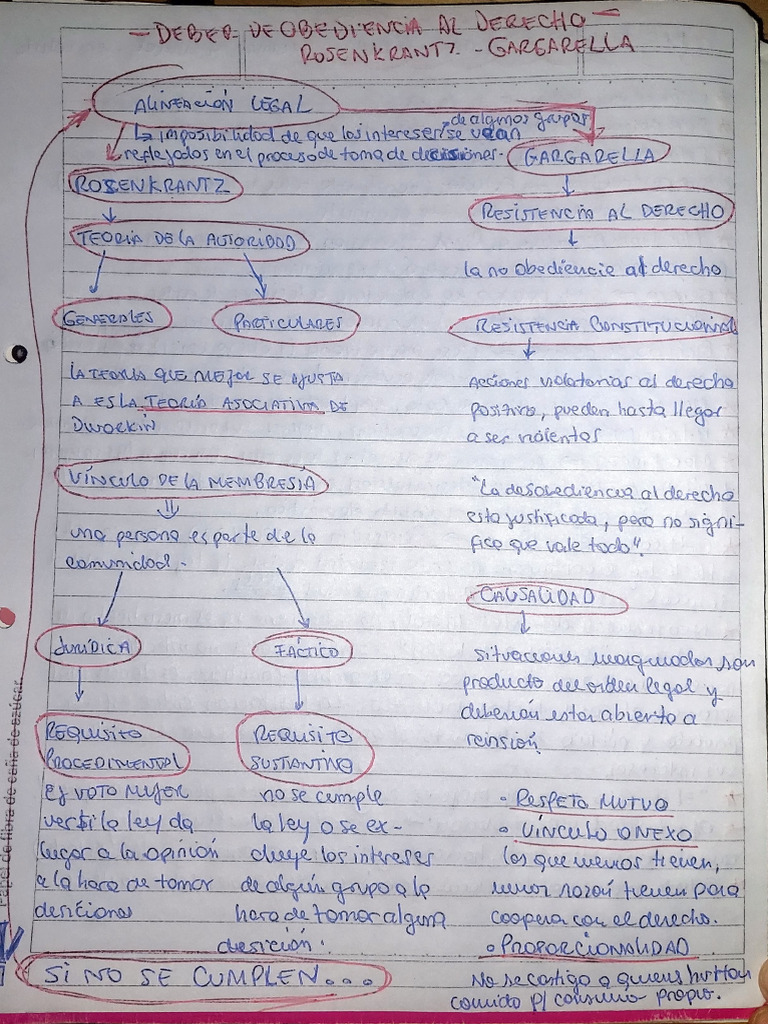 - DEBER DE OBEDIENCIA AL DERECHO -
ROSENKRANTZ - GARGARELLA
ALINEACIÓN LEGAL
↳ imposibilidad de que los intereses de algunos grupos se vean
reflejados en el proceso de toma de decisiones.
ROSENKRANTZ
TEORÍA DE LA AUTORIDAD
GENERALES
PARTICULARES
LA TEORÍA QUE MEJOR SE AJUSTA
A ES LA TEORÍA ASOCIATIVA DE
DWORKIN
VÍNCULO DE LA MEMBRESÍA
una persona es parte de la
comunidad.
JURÍDICA
REQUISITO
PROCEDIMENTAL
Ej VOTO MUJER
ver si la ley da
lugar a la opinión
a la hora de tomar
desiciones
FÁCTICO
REQUISITO
SUSTANTIVO
no se cumple
la ley o se ex-
cluye los intereses
de algún grupo a la
hora de tomar alguna
desición.
SI NO SE CUMPLEN...
GARGARELLA
RESISTENCIA AL DERECHO
la no obediencia al derecho
RESISTENCIA CONSTITUCIONAL
Acciones violatorias al derecho
positivo, pueden hasta llegar
a ser violentas
"La desobediencia al derecho
esta justificada, pero no signi-
fica que vale todo".
CAUSALIDAD
situaciones marginados son
producto del orden legal y
deberían estar abierto a
reinsión
• RESPETO MUTUO
• VÍNCULO O NEXO
los que menos tienen,
menor razón tienen para
cooperar con el derecho.
• PROPORCIONALIDAD
No se castiga a quienes hurtan
comida p/ consumo propio.
Papel de fibra de caña de azúcar